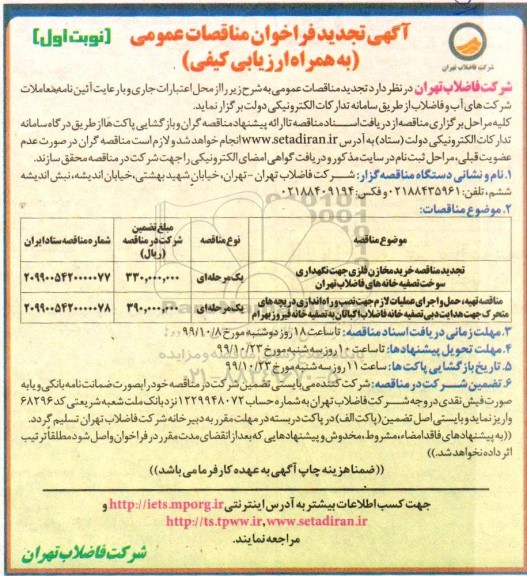 آگهی تجدید فراخوان مناقصات عمومی
(به همراه ارزیابی کیفی)
[نوبت اول]
شرکت فاضلاب تهران
شرکت فاضلاب تهران در نظر دارد تجدید مناقصات عمومی به شرح زیر را از محل اعتبارات جاری و با رعایت آئین نامه معاملات
شرکت های آب و فاضلاب از طریق سامانه تدارکات الکترونیکی دولت برگزار نماید.
کلیه مراحل برگزاری مناقصه از دریافت اسناد مناقصه تا ارائه پیشنهاد مناقصه گران و بازگشایی پاکت ها از طریق درگاه سامانه
تدارکات الکترونیکی دولت (ستاد) به آدرس www.setadiran.ir انجام خواهد شد و لازم است مناقصه گران در صورت عدم
عضویت قبلی، مراحل ثبت نام در سایت مذکور و دریافت گواهی امضای الکترونیکی را جهت شرکت در مناقصه محقق سازند.
۱. نام و نشانی دستگاه مناقصه گزار: شرکت فاضلاب تهران - تهران، خیابان شهید بهشتی، خیابان اندیشه، نبش اندیشه
ششم، تلفن: ۰۲۱۸۸۴۳۵۹۶۱ و فکس: ۰۲۱۸۸۴۰۹۱۹۴
۲. موضوع مناقصات:
موضوع مناقصه | نوع مناقصه | مبلغ تضمین شرکت در مناقصه (ریال) | شماره مناقصه ستاد ایران
تجدید مناقصه خرید مخازن فلزی جهت نگهداری سوخت تصفیه خانه های فاضلاب تهران | یک مرحله ای | ۳۳۰,۰۰۰,۰۰۰ | ۲۰۹۹۰۰۵۴۲۰۰۰۰۷۷
مناقصه تهیه، حمل و اجرای عملیات لازم جهت نصب و راه اندازی دریچه های متحرک جهت هدایت دبی تصفیه خانه فاضلاب اکباتان به تصفیه خانه فیروز بهرام | یک مرحله ای | ۳۹۰,۰۰۰,۰۰۰ | ۲۰۹۹۰۰۵۴۲۰۰۰۰۷۸
۳. مهلت زمانی دریافت اسناد مناقصه: تا ساعت ۱۸ روز دوشنبه مورخ ۹۹/۱۰/۸
۴. مهلت تحویل پیشنهادها: تا ساعت ۱۰ روز سه شنبه مورخ ۹۹/۱۰/۲۳
۵. تاریخ بازگشایی پاکت ها: ساعت ۱۱ روز سه شنبه مورخ ۹۹/۱۰/۲۳
۶. تضمین شرکت در مناقصه: شرکت کننده می بایستی تضمین شرکت در مناقصه خود را بصورت ضمانت نامه بانکی و یا به
صورت فیش نقدی در وجه شرکت فاضلاب تهران به شماره حساب ۱۲۲۹۹۴۸۰۷۲ نزد بانک ملت شعبه شریعتی کد ۶۸۲۹۶
واریز نماید و بایستی اصل تضمین (پاکت الف) در پاکت دربسته در مهلت مقرر به دبیرخانه شرکت فاضلاب تهران تسلیم گردد.
((به پیشنهادهای فاقد امضاء، مشروط، مخدوش و پیشنهادهایی که بعد از انقضای مدت مقرر در فراخوان واصل شود مطلقا ترتیب
اثر داده نخواهد شد.))
((ضمنا هزینه چاپ آگهی به عهده کارفرما می باشد))
جهت کسب اطلاعات بیشتر به آدرس اینترنتی http://iets.mporg.ir و
http://ts.tpww.ir, www.setadiran.ir
مراجعه نمایند.
شرکت فاضلاب تهران